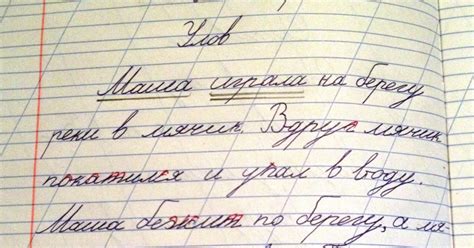 Улов
Маша играла на берегу
реки в мячик. Вдруг мячик
покатился и упал в воду.
Маша бежит по берегу, а мя-